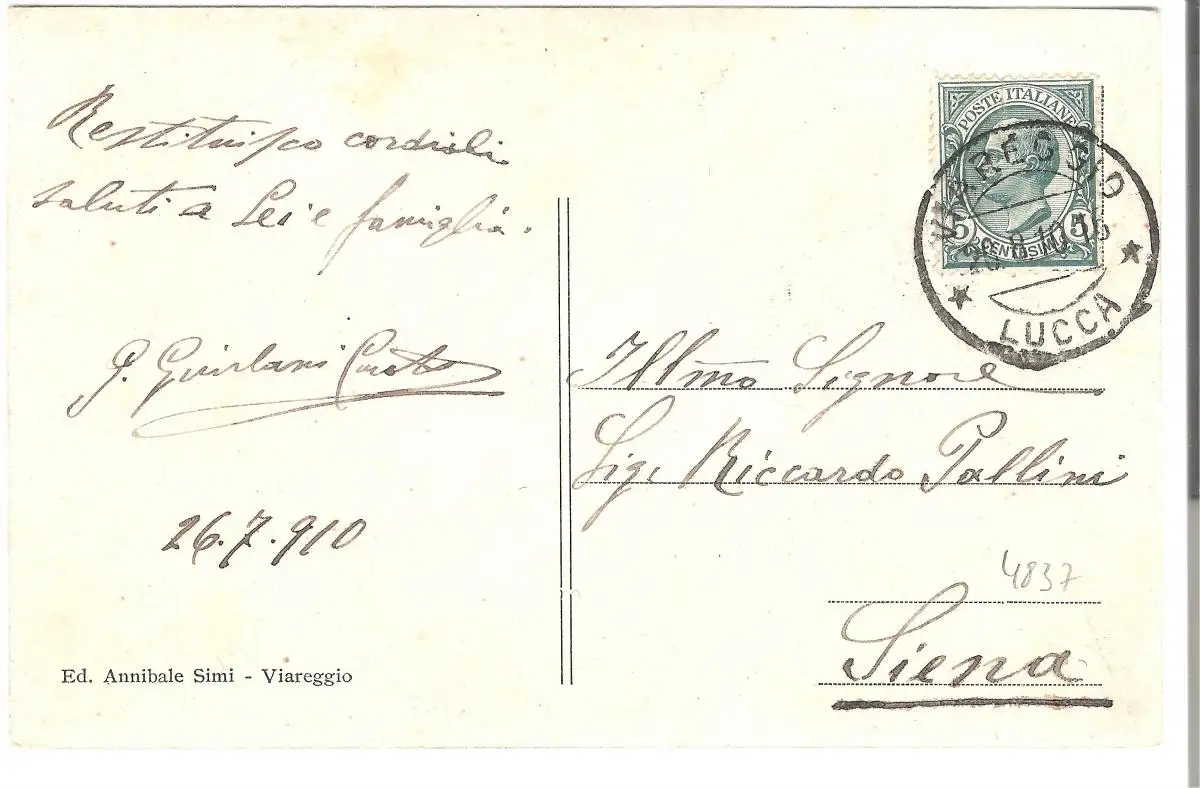 Restituisco cordiali
saluti a Lei e famiglia.
26.7.910
Ed. Annibale Simi - Viareggio
POSTE ITALIANE
5 5
CENTESIMI
VIAREGGIO
10.16
LUCCA
Illmo Signore
Sig. Riccardo Pallini
4837
Siena